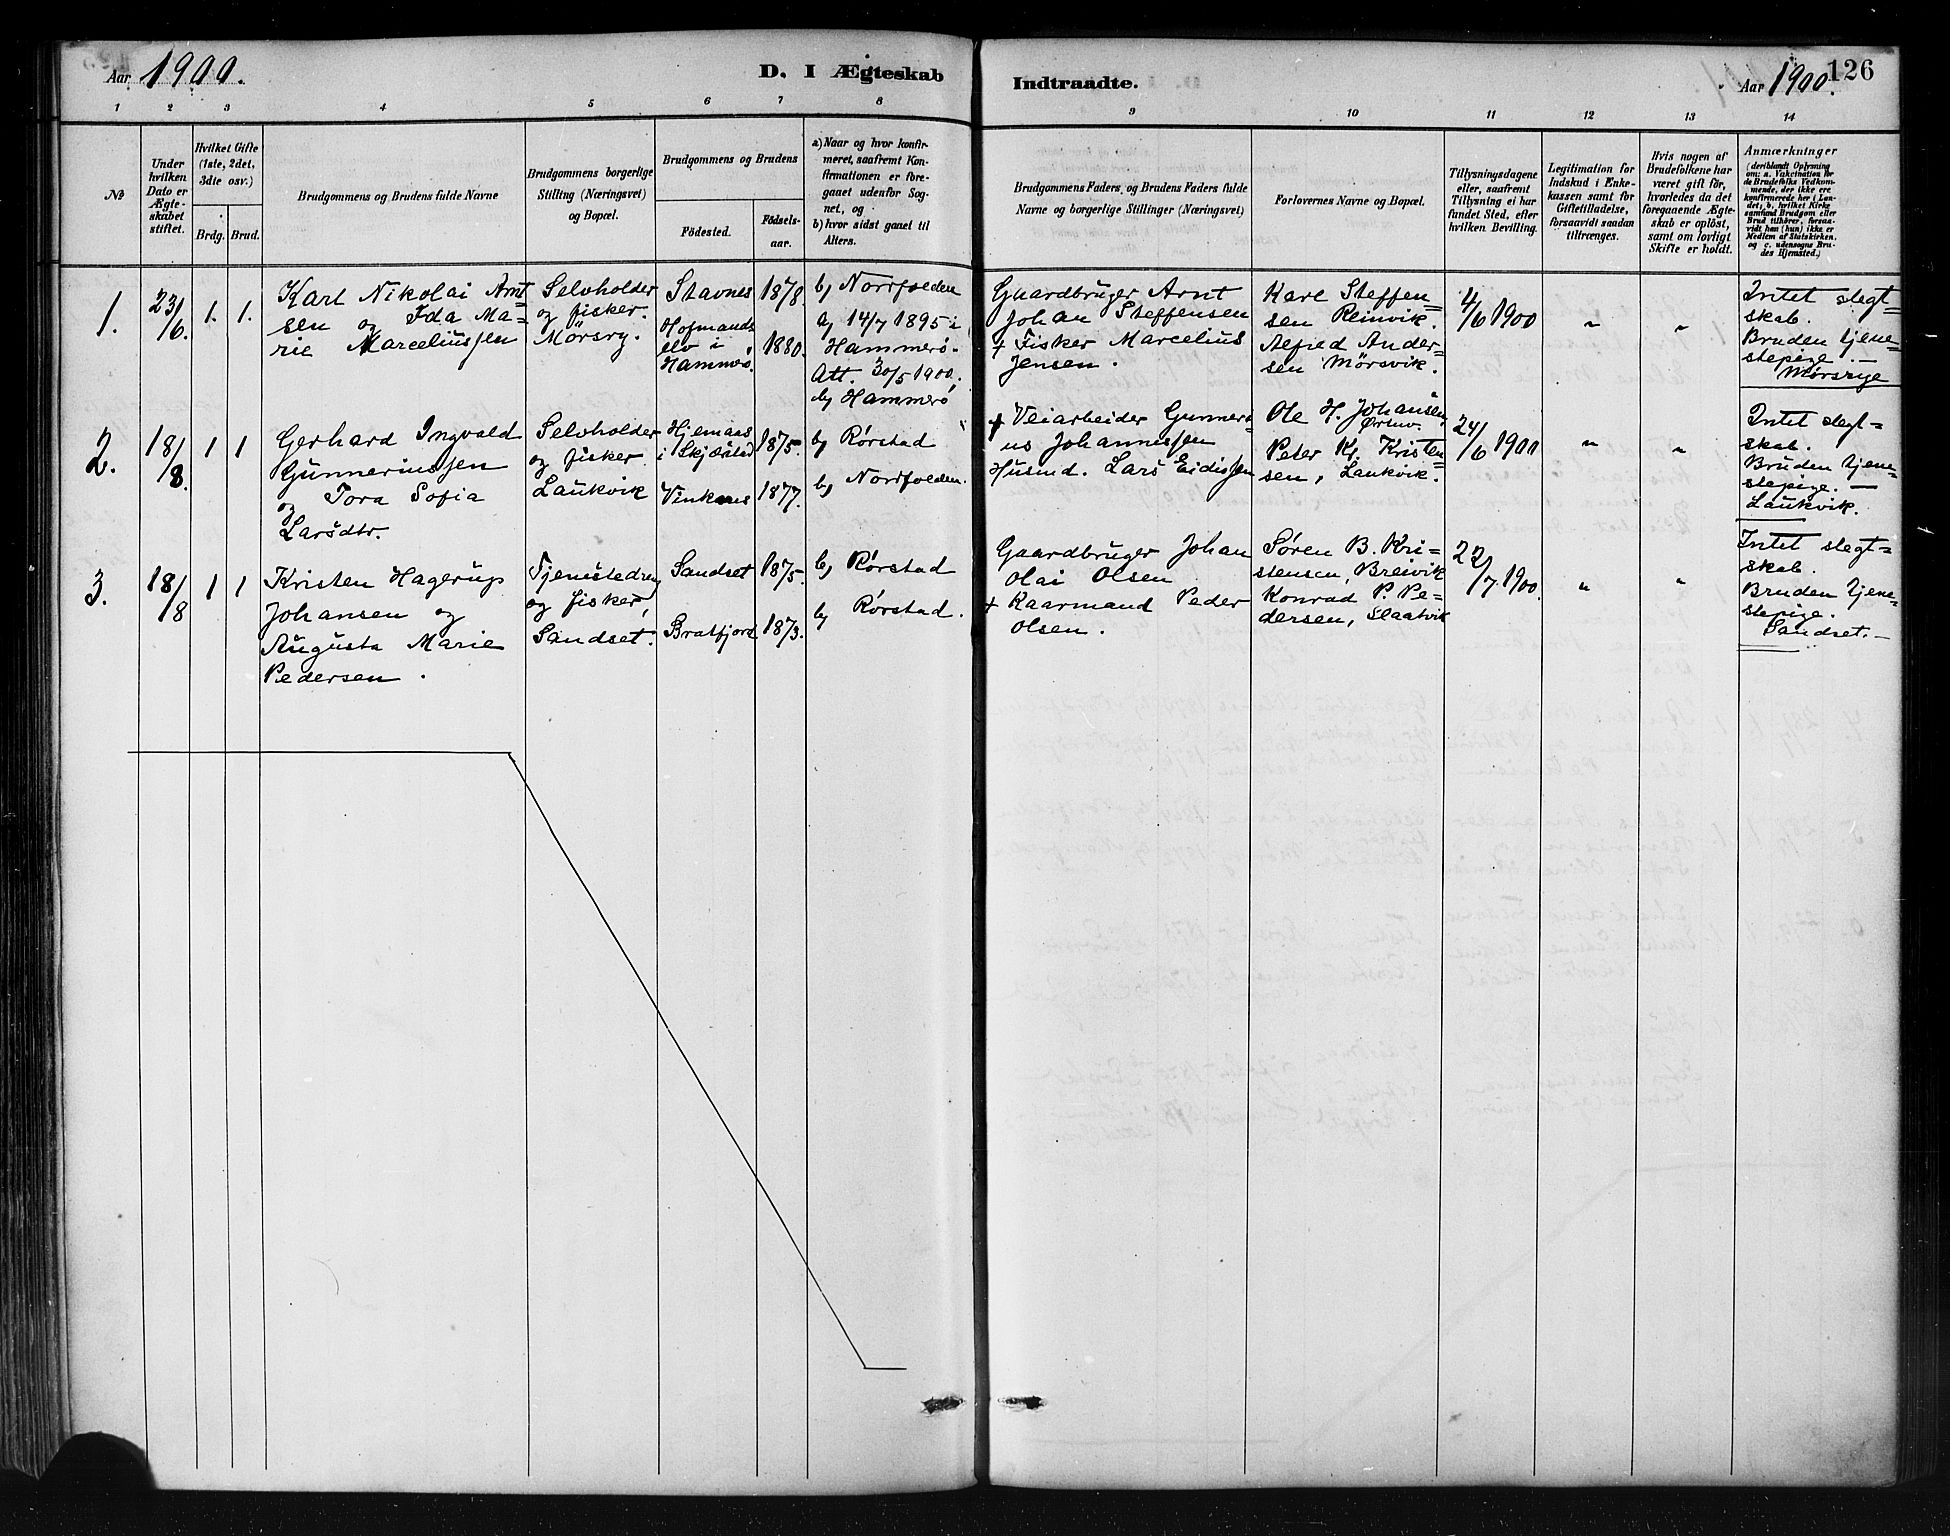 Aar 1900.
D. I Ægteskab
Indtraadte.
Aar 1900.
126
1 2 3 4 5 6 7 8 9 10 11 12 13 14
№
Under hvilken Dato er Ægte-skabet stiftet.
Hvilket Gifte (1ste, 2det, 3die osv.)
Brdg. Brud.
Brudgommens og Brudens fulde Navne
Brudgommens borgerlige Stilling (Næringsvei) og Bopæl.
Brudgommens og Brudens
Födested.
Födsels-aar.
a) Naar og hvor konfir-meret, saafremt Kon-firmationen er fore-gaaet udenfor Sog-net, og
b) hvor sidst gaaet til Alters.
Brudgommens Faders, og Brudens Faders fulde Navne og borgerlige Stillinger (Næringsvei)
Forlovernes Navne og Bopæl.
Tillysningsdagene eller, saafremt Tillysning ei har fundet Sted, efter hvilken Bevilling.
Legitimation for Indskud i Enke-kassen samt for Giftetilladelse, forsaavidt saadan tiltrænges.
Hvis nogen af Brudefolkene har været gift før, hvorledes da det foregaaende Ægte-skab er oplöst, samt om lovligt Skifte er holdt.
Anmærkninger
(deriblandt Oplysning om: a. Vakcination for de Brudefolks Vedkom-mende, der ikke ere konfirmerede her i Lan-det; b. hvilket Kirke samfund Brudgom eller Brud tilhörer, forsaa-vidt han (hun) ikke er Medlem af Statskirken, og c. udensogns Bru-des Hjemsted.)
1.
23/6.
1. 1.
Karl Nikolai Arnt=
sen og Ida Ma-
rie Marceliussen
Selvholder
og fisker.
Mörsry.
Stavnes
Hofmands
elv i
Hammerö.
1878.
1880.
b) Nordfolden
a) 14/7 1895 i
Hammerö.
Att. 30/5 1900.
b) Hammerö
Gaardbruger Arnt
Johan Steffensen
+ Fisker Marcelius
Jensen.
Karl Steffen=
sen Reinvik.
Alfred Ander-
sen Mørsvik.
4/6 1900
"
"
Intet slegt=
skab.
Bruden tjene=
stepige. —
Mørsrye
2.
18/8.
1 1
Gerhard Ingvald
Gunneriussen
og Tora Sofia
Larsdtr.
Selvholder
og fisker
Laukvik
Hjemaas
i Skjærstad
Vinkenes
1875.
1877.
b) Rørstad
b) Nordfolden.
+ Veiarbeider Gunneri=
us Johannessen
Husmd. Lars Eidissen
Ole H. Johansen,
Peter Kr. Kristen=
sen, Laukvik.
24/6 1900
"
"
Intet slegt-
skab.
Bruden tjene=
stepige. —
Laukvik.
3.
18/8
1 1
Kristen Hagerup
Johansen og
Augusta Marie
Pedersen.
Tjenestedreng
og fisker,
Sandset.
Sandset
Bratfjord
1875.
1873.
b) Rørstad
b) Rørstad.
Gaardbruger Johan
Olai Olsen
+ Kaarmand Peder
Olsen.
Søren B. Kri=
stensen, Breivik
Konrad P. Pe=
dersen, Slaatvik
22/7 1900.
"
"
Intet slegt=
skab.
Bruden tjene=
stepige.
Sandset. —